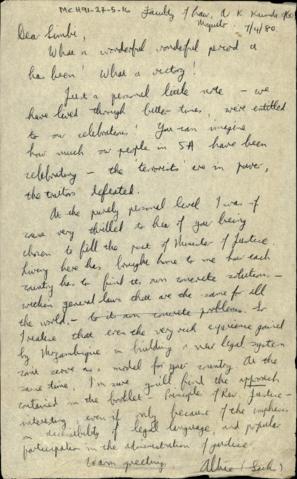 MCH91-27-5-16 Faculty of Law, N K Kunda
Maputo 7/4/80
Dear Simbi,
What a wonderful wonderful period it
has been! What a victory!
Just a personal little note – we
have lived through bitter times, were entitled
to our celebrations! You can imagine
how much our people in SA have been
celebrating – the 'terrorists' are in power,
the traitors defeated.
At the purely personal level I was of
course very thrilled to hear of you being
chosen to fill the post of Minister of Justice.
Living here has brought home to me how each
country has to find its own concrete solutions –
within general laws that are the same for all
the world. – to its own concrete problems. So
I realise that even the very rich experience gained
by Mozambique in building a new legal system
cannot serve as a model for your country. At the
same time, I'm sure you'll find the approach
contained in the booklet – Principle of Rev. Justice –
interesting, even if only because of the emphasis
on accessibility of legal language, and popular
participation in the administration of justice.
Warm greetings,
Albie (Sachs)